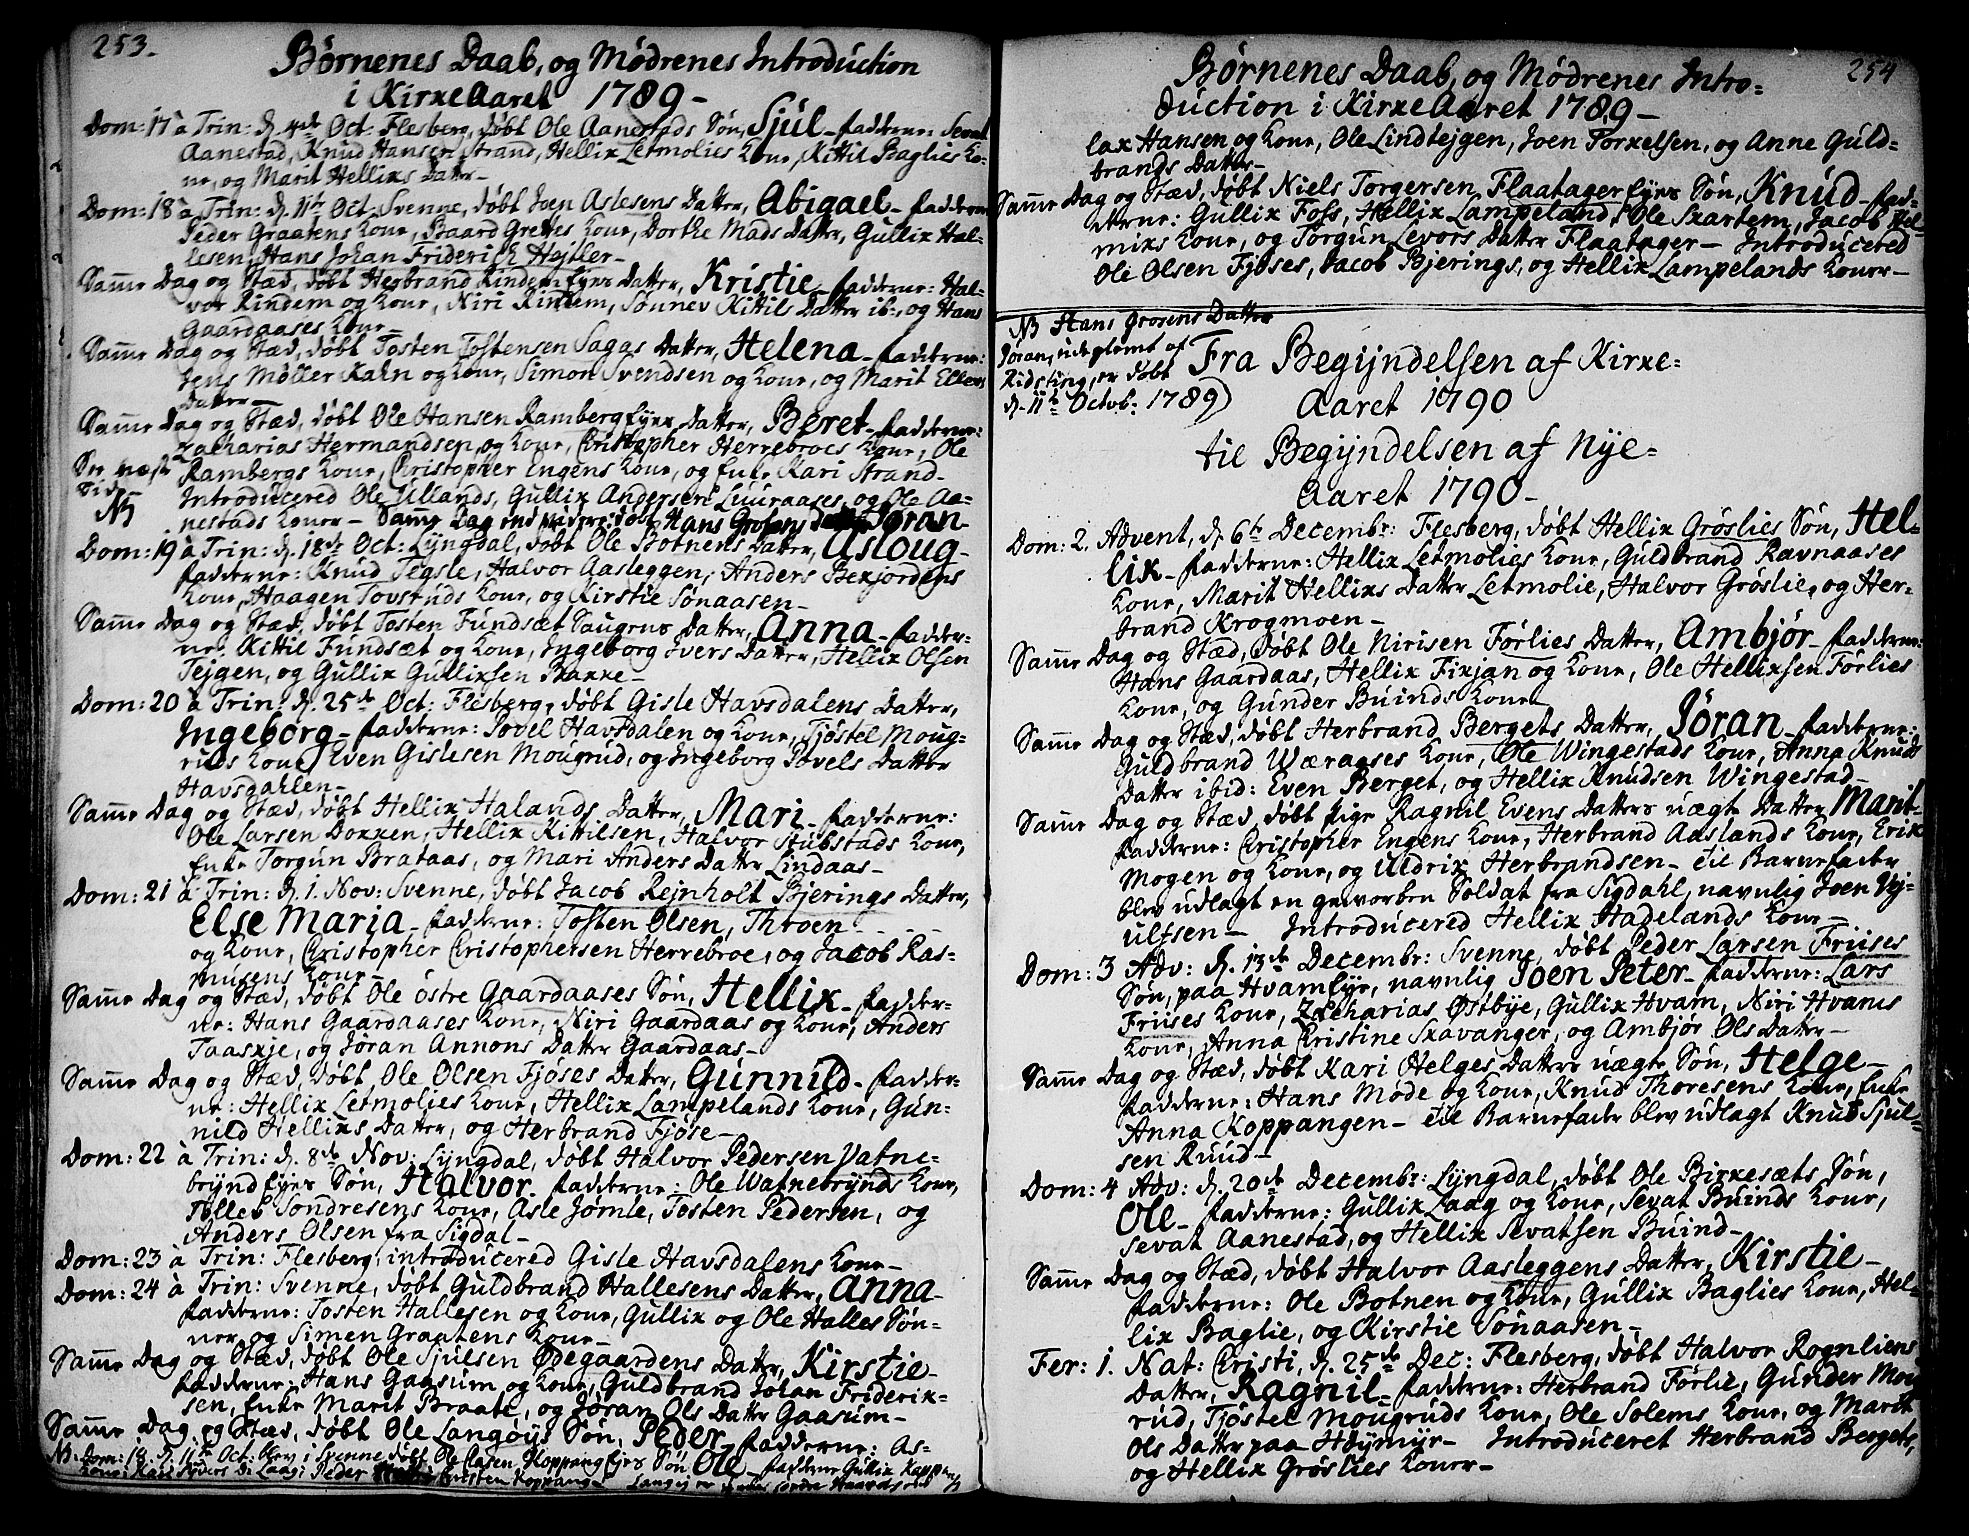 253.
Børnenes Daab, og Mødrenes Introduction
i KirxeAaret 1789 -
Dom: 17 à Trin: d. 4de Oct: Flesberg, døbt Ole Aanestads Søn, Sjul - fadderne: Sevat
Aanestad, Knud Hansen Strand, Hellix Letmolies Kone, Kittil Baglies Ko=
ne, og Marit Hellixs Datter -
Dom: 18 à Trin: d. 11te Oct: Svenne, døbt Joen Aslesens Datter, Abigael - fadderne
Peder Graatens Kone, Baard Grettes Kone, Dorthe Mads Datter, Gullix Hal=
lesen, Hans Johan Friderich Hejtler -
Samme Dag og Stæd, døbt Herbrand Rindem Eyes Datter, Kristie - fadderne: Hal=
vor Rindem og Kone, Niri Rindem, Sønnev Kittils Datter ib:, og Hans
Gaardaases Kone -
Samme Dag og Stæd, døbt Tosten Tostensen Sagas Datter, Helena - fadderne:
Jens Møller Kahn og Kone, Simon Svendsen og Kone, og Marit Ellens
Datter -
Samme Dag og Stæd, døbt Ole Hansen Ramberg Eyes Datter, Beret - fadderne:
Zacharias Hermandsen og Kone, Christopher Herrebroes Kone, Ole
Rambergs Kone, Christopher Engens Kone, og Enke Kari Strand -
See næste
Side
NB
Introducered Ole Ullands, Gullix Andersen Luuraases, og Ole Aa=
nestads Koner - Samme Dag end videre: døbt Hans Grosens Jøran -
Dom: 19 à Trin: d. 18de Oct: Lyngdal, døbt Ole Botnens Datter, Asloug -
fadderne: Knud Tegsle, Halvor Aasleggen, Anders Bexjordens
Kone, Haagen Tovsruds Kone, og Kirstie Sønaasen -
Samme Dag og Stæd, døbt Tosten Fundsæt Saugens Datter, Anna - fadder=
ne: Kittil Fundsæt og Kone, Ingeborg Evers Datter, Hellix Olsen
Tejgen, og Gullix Gullixsen Baxxe -
Dom: 20 à Trin: d. 25de Oct: Flesberg, døbt Gisle Havsdalens Datter,
Ingeborg - fadderne: Povel Havsdalen og Kone, Tjøstel Moug=
ruds Kone, Even Gislesen Mougrud, og Ingeborg Povels Datter
Havsdahlen -
Samme Dag og Stæd, døbt Hellix Halands Datter, Mari - fadderne:
Ole Larsen Doxxen, Hellix Kittilsen, Halvor Stubstads Kone,
Enke Torgun Brataas, og Mari Anders Datter Lindaas -
Dom: 21 à Trin: d. 1. Nov: Svenne, døbt Jacob Rejnholt Bjerings Datter,
Else Maria - fadderne: Tosten Olsen, Throen
og Kone, Christopher Christophersen Herrebroe, og Jacob Ras=
musens Kone -
Samme Dag og Stæd, døbt Ole østre Gaardaases Søn, Hellix - fadder=
ne: Hans Gaardaases Kone, Niri Gaardaas og Kone, Anders
Taasxje, og Jøran Annons Datter Gaardaas -
Samme Dag og Stæd, døbt Ole Olsen Fjøses Datter, Gunnild - fadder=
ne: Hellix Letmolies Kone, Hellix Lampelands Kone, Gun=
nild Hellixs Datter, og Herbrand Fjøse -
Dom: 22 à Trin: d. 8de Nov: Lyngdal, døbt Halvor Pedersen Vatne=
brynd Eyes Søn, Halvor - fadderne: Ole Watnebrynds Kone,
Tollev Søndresens Kone, Asle Jomle, Tosten Pedersen, og
Anders Olsen fra Sigdal -
Dom: 23 à Trin: Flesberg, introducered Gisle Havsdalens Kone -
Dom: 24 à Trin: Svenne, døbt Guldbrand Hallesens Datter, Anna -
fadderne: Tosten Hallesen og Kone, Gullix og Ole Halles Søn=
ner, og Simen Graatens Kone -
Samme Dag og Stæd, døbt Ole Sjulsen Ødegaardens Datter, Kirstie -
fadderne: Hans Gaasum og Kone, Guldbrand Johan Friderix=
sen, Enke Marit Braate, og Jøran Ols Datter Gaasum -
Samme Dag og Stæd, døbt Ole Langøys Søn, Peder - fadderne: As=
NB. Dom: 18. d. 11te Oct: blev i Svenne døbt Ole Olasen Koppang Eyes Søn Ole - fadderne Gullix Koppang
254
Børnenes Daab, og Mødrenes Intro=
duction i KirxeAaret 1789 -
lax Hansen og Kone, Ole Lindtejgen, Joen Torxelsen, og Anne Guld=
brands Datter -
Samme Dag og Stæd, døbt Niels Torgersen Flaatager Eyes Søn, Knud - fad=
derne: Gullix Foss, Hellix Lampeland, Ole Sxartem, Jacob Hel=
mixs Kone, og Torgun Levors Datter Flaatager - Introducered
Ole Olsen Fjøses, Jacob Bjerings, og Hellix Lampelands Koner -
NB Hans Grosens Datter
Jøran, udeglemt af
Ridsting, er døbt
d. 11te Octob: 1789)
Fra Begyndelsen af Kirxe=
Aaret 1790
til Begyndelsen af Nye=
Aaret 1790 -
Dom: 2. Advent, d. 6te Decembr: Flesberg, døbt Hellix Grøslies Søn, Hel=
lix - fadderne: Hellix Letmolies Kone, Guldbrand Ravnaases
Kone, Marit Hellixs Datter Letmolie, Halvor Grøslie, og Her=
brand Krogmoen -
Samme Dag og Stæd, døbt Ole Nirisen Førlies Datter, Ambjør - fadderne:
Hans Gaardaas, Hellix Fixjan og Kone, Ole Hellixsen Førlies
Kone, og Gunder Buinds Kone -
Samme Dag og Stæd, døbt Herbrand Bergets Datter, Jøran - fadderne:
Guldbrand Wæraases Kone, Ole Wingestads Kone, Anna Knuds
Datter ibid: Even Berget, og Hellix Knudsen Wingestad -
Samme Dag og Stæd, døbt Pige Ragnil Evens Datters uægte Datter, Marit -
fadderne: Christopher Engens Kone, Herbrand Aaslands Kone, Erix
Mogen og Kone, og Uldrix Herbrandsen - Til Barnefader
blev udlagt en geworben Soldat fra Sigdahl, navnlig Joen Vej=
ulfsen - Introducered Hellix Hadelands Kone -
Dom: 3 Adv: d. 13de Decembr: Svenne, døbt Peder Larsen Friises
Søn, paa Hvam Eye, navnlig Joen Peter - fadderne: Lars
Friises Kone, Zacharias Østbye, Gullix Hvam, Niri Hvams
Kone, Anna Christine Sxavanger, og Ambjør Ols Datter -
Samme Dag og Stæd, døbt Kari Helges Datters uægte Søn, Helge -
fadderne: Hans Mode og Kone, Knud Thoresens Kone, Enke
Anna Koppangen - Til Barnefader blev udlagt Knud Sjul=
sen Ruud -
Dom: 4 Adv: d. 20de Decembr: Lyngdal, døbt Ole Birxesæts Søn,
Ole - fadderne: Gullix Laag og Kone, Sevat Buinds Kone,
Sevat Aanestad, og Hellix Sevatsen Buind -
Samme Dag og Stæd, døbt Halvor Aasleggens Datter, Kirstie -
fadderne: Ole Botnen og Kone, Gullix Baglies Kone, Hel=
lix Baglie, og Kirstie Sønaasen -
Fer: 1. Nat: Christi, d. 25de Dec: Flesberg, døbt Halvor Rognliens
Datter, Ragnil - fadderne: Herbrand Førlie, Gunder Mog
rud, Tjøstel Mougruds Kone, Ole Solems Kone, og Marit
Ols Datter paa Høymyr - Introduceret Herbrand Bergets,
og Hellix Grøslies Koner -